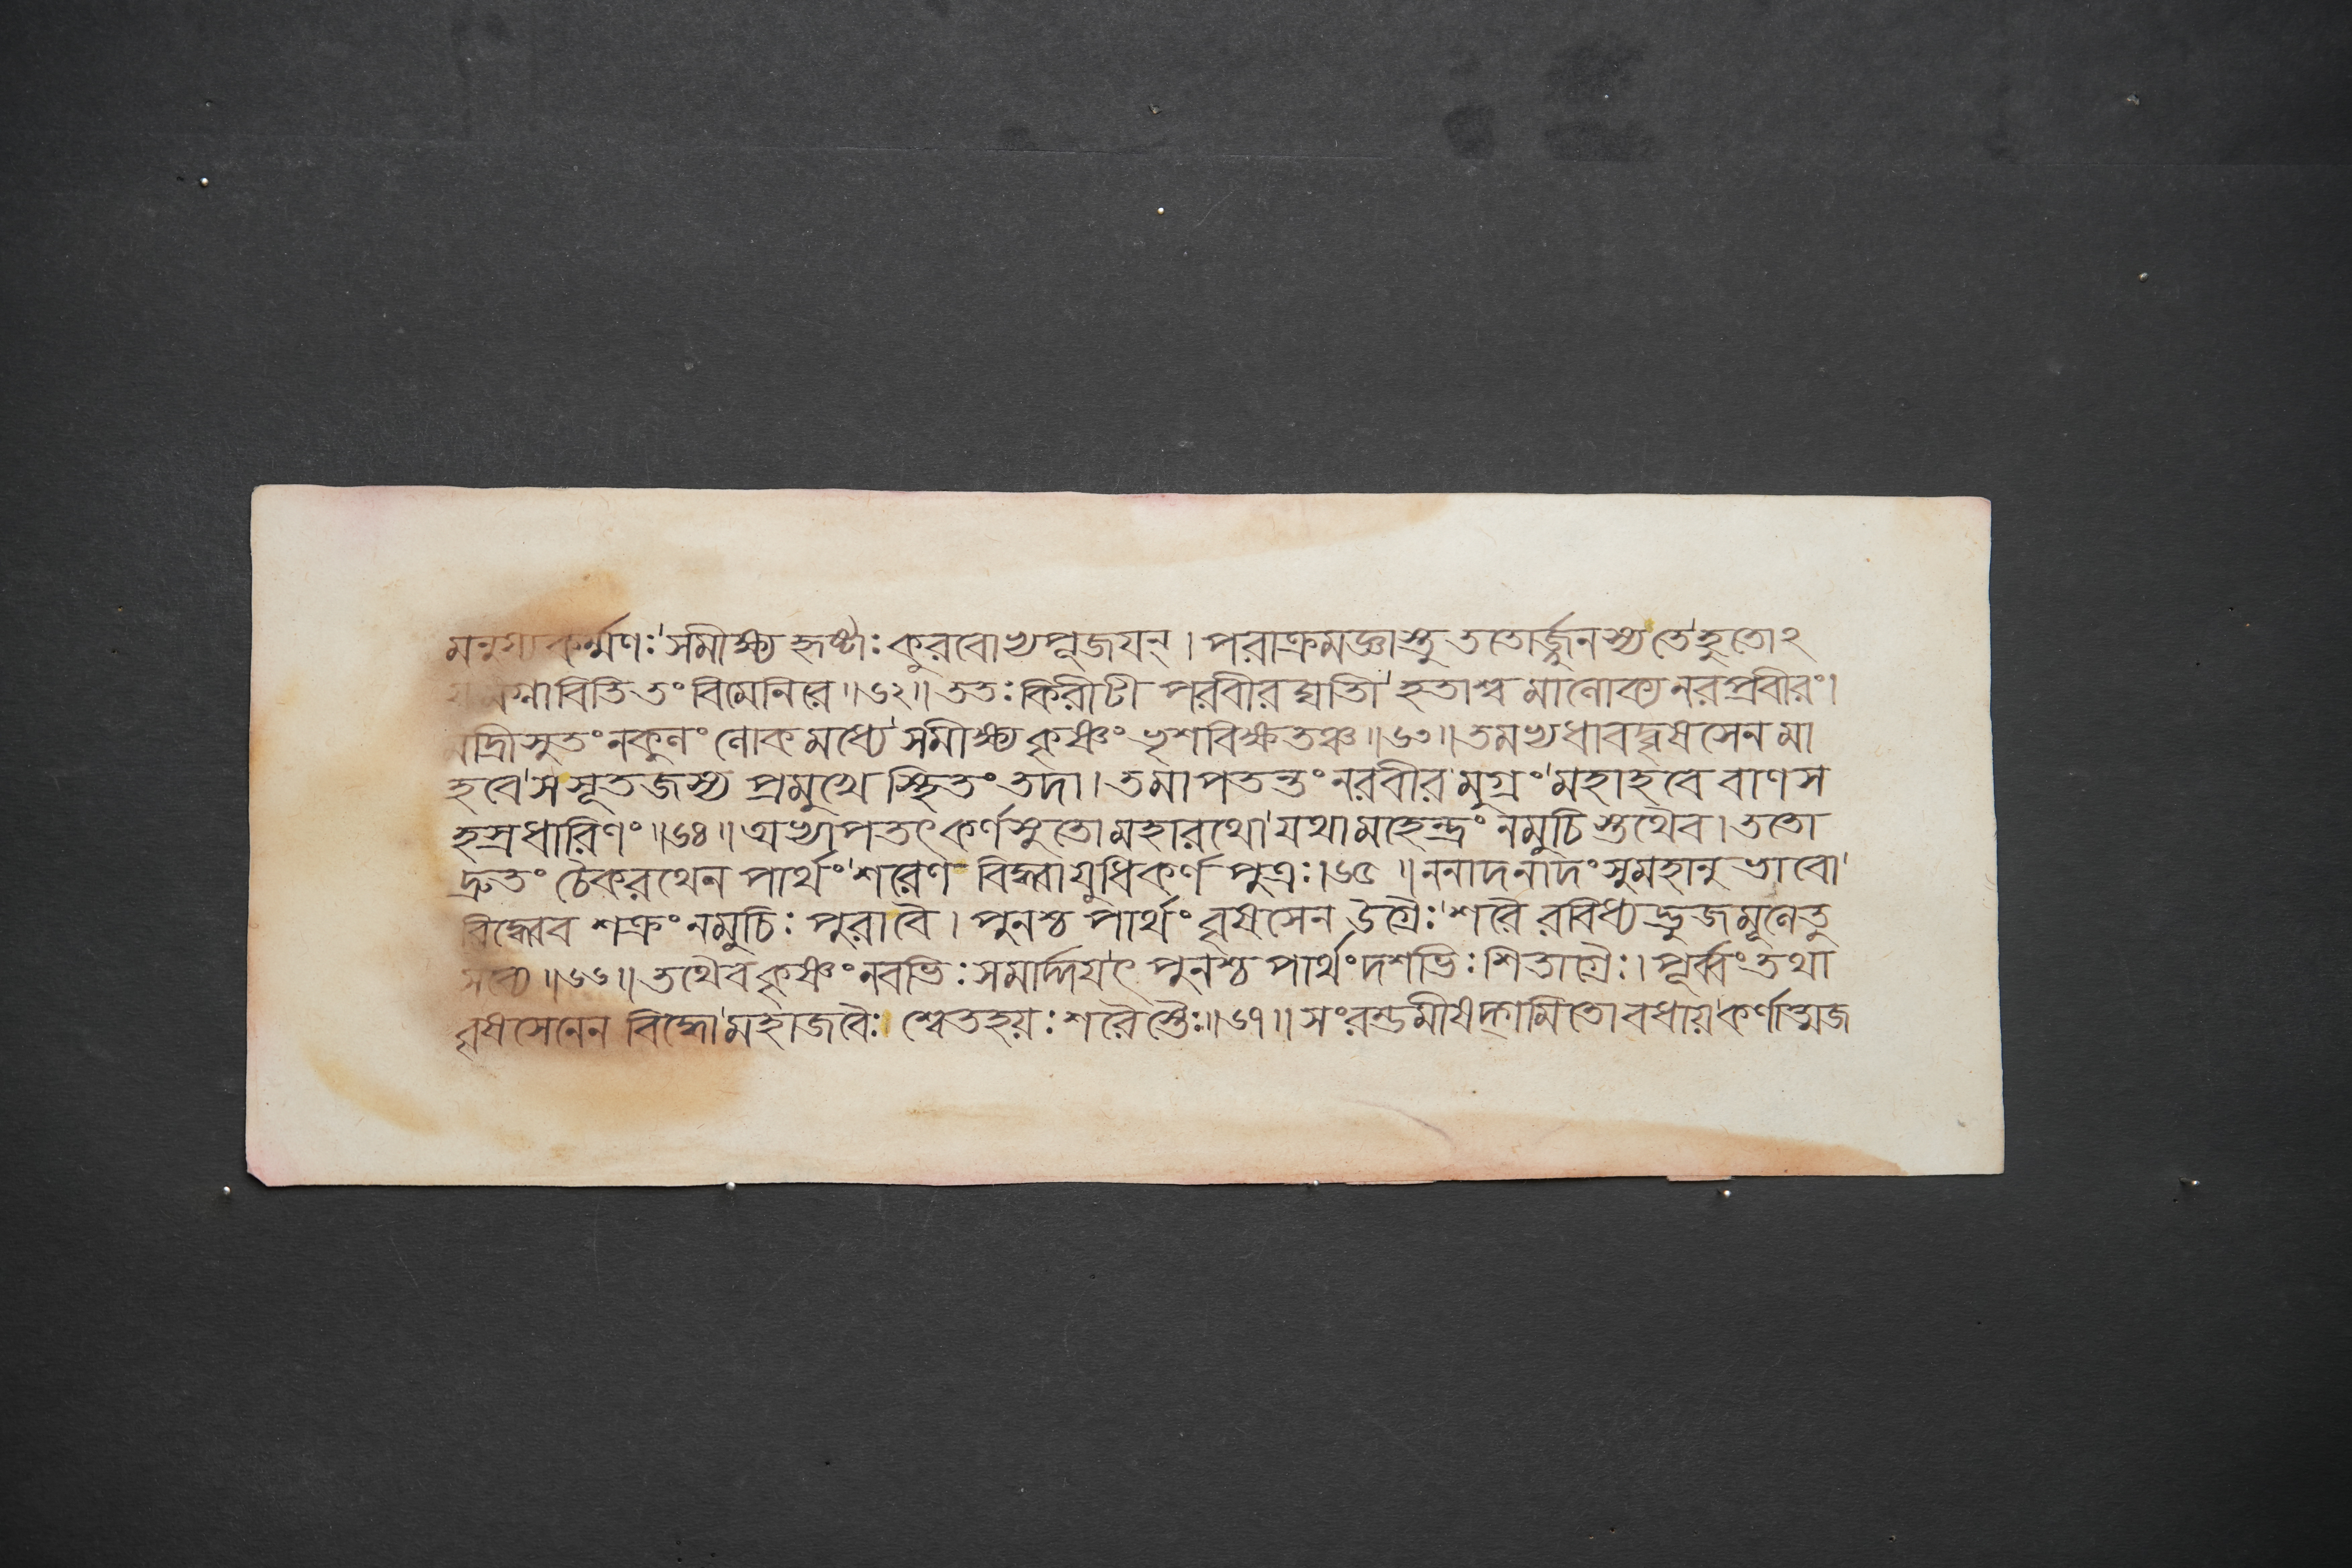 মনুষ্যকর্ম্মণঃ'সমীক্ষ্য হৃষ্টাঃ কুরবোভ্যপূজযন্। পরাক্রমজ্ঞাস্তু ততোর্জ্জুনস্য তে'হুতোঽ
যমগ্নাবিতি তং বিমেনিরে॥৬২॥ ততঃ কিরীটী পরবীরঘাতী'হতাশ্ব মালোক্য নরপ্রবীরং।
মাদ্রীসুতং নকুলং লোকমধ্যে'সমীক্ষ্য কৃষ্ণং ভৃশবিক্ষতঞ্চ॥৬৩॥ তমভ্যধাবদ্বৃষসেন মা
হবে'স সূতজস্য প্রমুখে স্থিতং তদা। তমাপতন্তং নরবীর মুগ্রং'মহাহবে বাণস
হস্রধারিণং॥৬৪॥ অভ্যাপতৎ কর্ণসুতো মহারথো'যথা মহেন্দ্রং নমুচি স্তথৈব। ততো
দ্রুতং চৈকরথেন পার্থং'শরেণ বিদ্ধ্বা যুধি কর্ণ পুত্রঃ।৬৫॥ ননাদ নাদং সুমহানুভাবো'
বিদ্ধ্বেব শক্রং নমুচিঃ পুরা বৈ। পুনশ্চ পার্থং বৃষসেন উগ্রৈঃ'শরৈ রবিধ্যদ্ভুজমূলে তু
সব্যে॥৬৬॥ তথৈব কৃষ্ণং নবভিঃ সমার্দ্দযৎ পুনশ্চ পার্থং দশভিঃ শিতাগ্রৈঃ। পূর্ব্বং তথা
বৃষসেনেন বিদ্ধো'মহাজবৈঃ শ্বেতহয়ঃ শরৈস্তৈঃ॥৬৭॥ সংরম্ভমীষদ্গমিতো বধায়'কর্ণাত্মজ